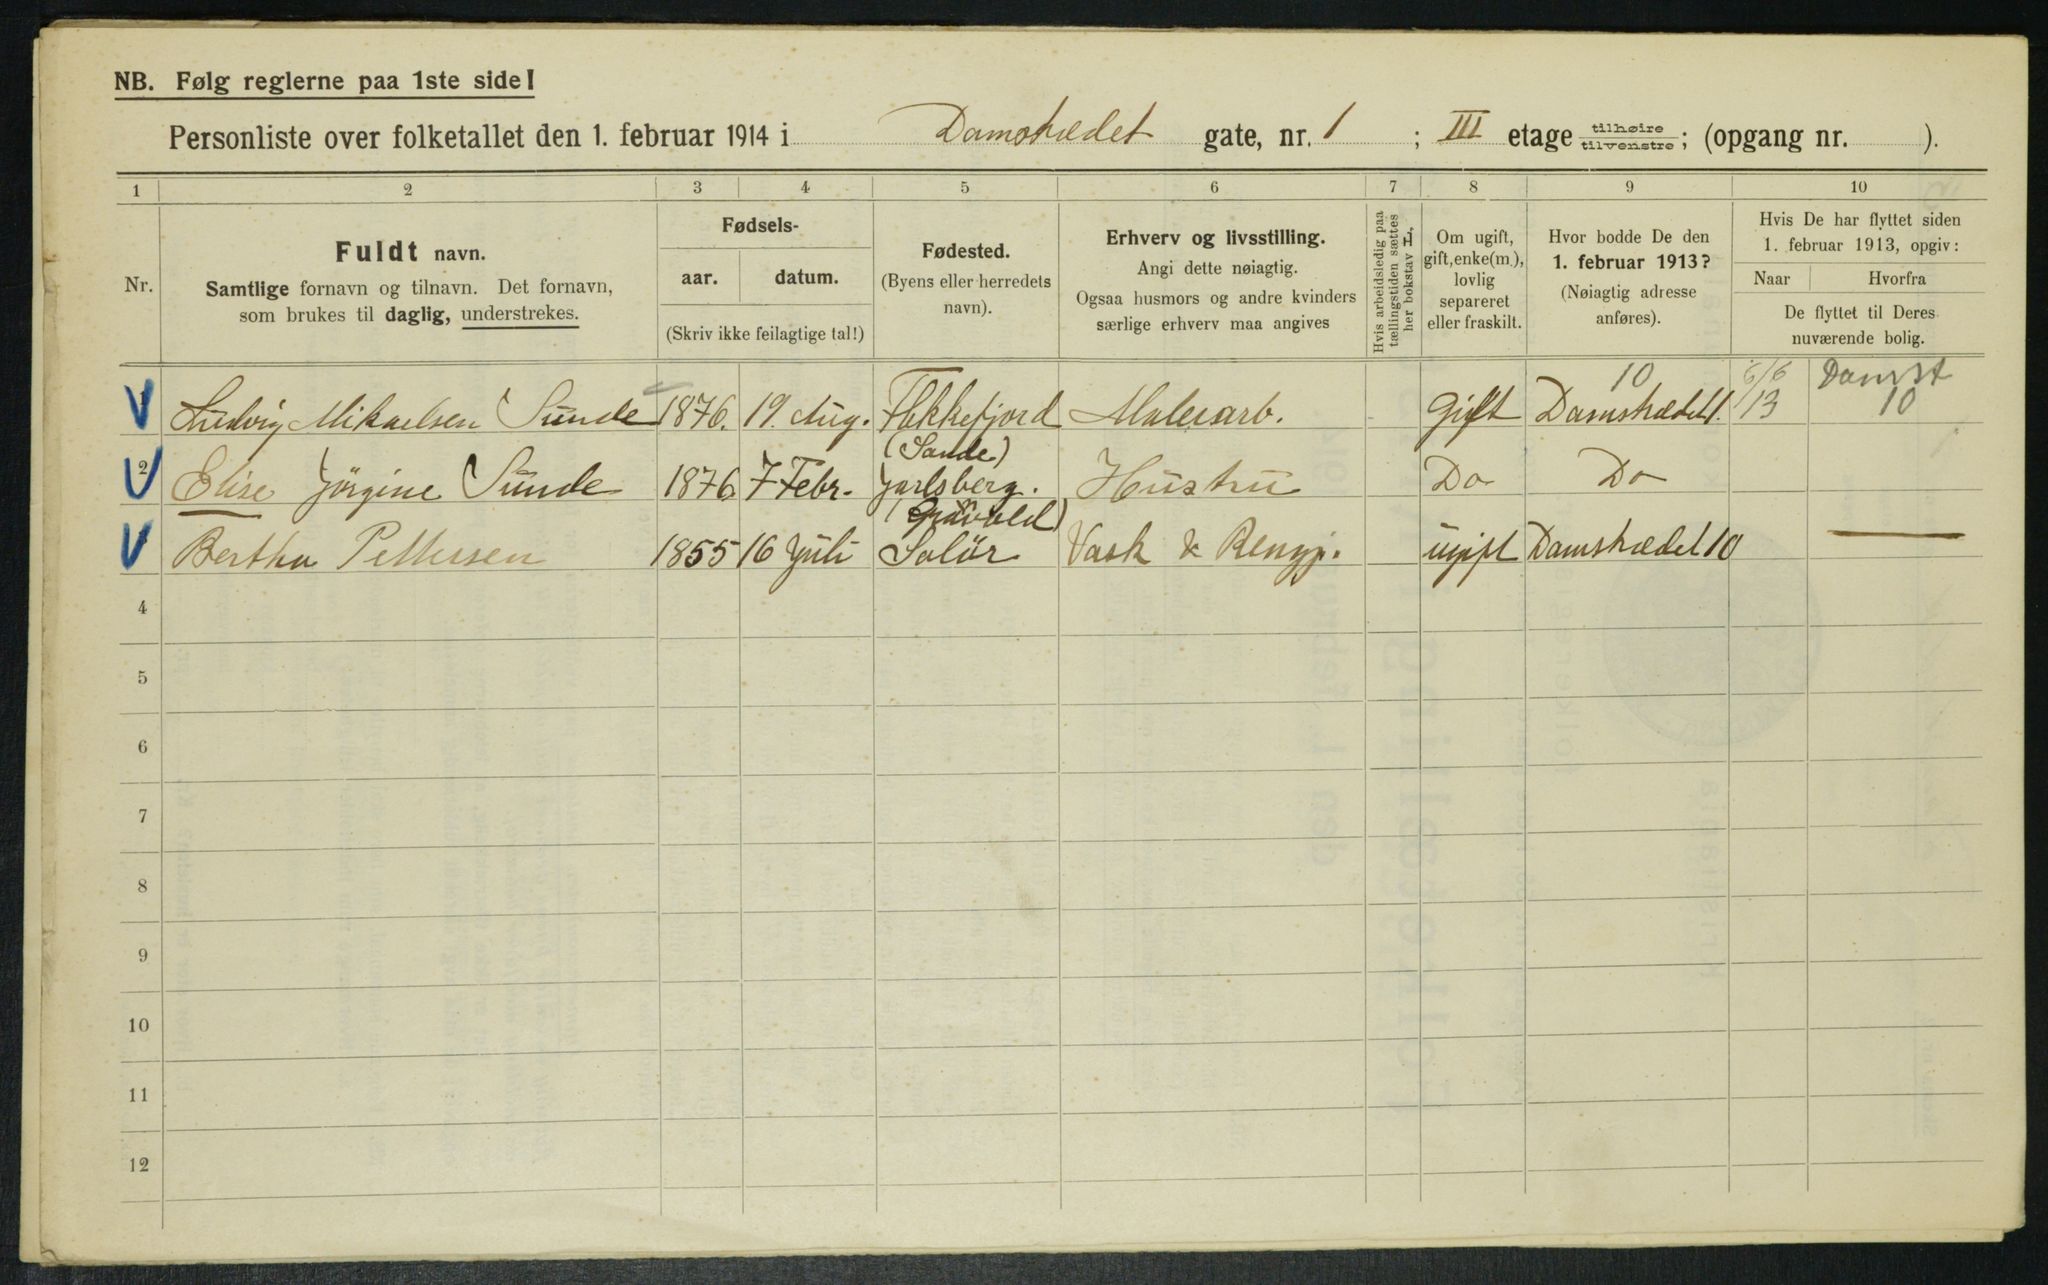 NB. Følg reglerne paa 1ste side!
Personliste over folketallet den 1. februar 1914 i Damstrædet gate, nr. 1 ; III etage tilhøire tilvenstre; (opgang nr. ).
1 2 3 4 5 6 7 8 9 10
Nr.
Fuldt navn.
Samtlige fornavn og tilnavn. Det fornavn,
som brukes til daglig, understrekes.
Fødsels-
aar. datum.
(Skriv ikke feilagtige tal!)
Fødested.
(Byens eller herredets
navn).
Erhverv og livsstilling.
Angi dette nøiagtig.
Ogsaa husmors og andre kvinders
særlige erhverv maa angives
Hvis arbeidsledig paa
tællingstiden sættes
her bokstav L.
Om ugift,
gift, enke(m.),
lovlig
separeret
eller fraskilt.
Hvor bodde De den
1. februar 1913?
(Nøiagtig adresse
anføres).
Hvis De har flyttet siden
1. februar 1913, opgiv:
Naar Hvorfra
De flyttet til Deres
nuværende bolig.
1 Ludvig Mikaelsen Sunde 1876. 19. Aug. Flekkefjord Malerarb. Gift Damstrædet 1. 10 6/6 13 Damst 10
(Sande)
2 Elise Jörgine Sunde 1876 7 Febr. Jarlsberg. Hustru Do Do
Bertha Pettersen 1855 16 Juli Solör Vask & Rengj. ugift Damstrædet 10 —
4
5
6
7
8
9
10
11
12